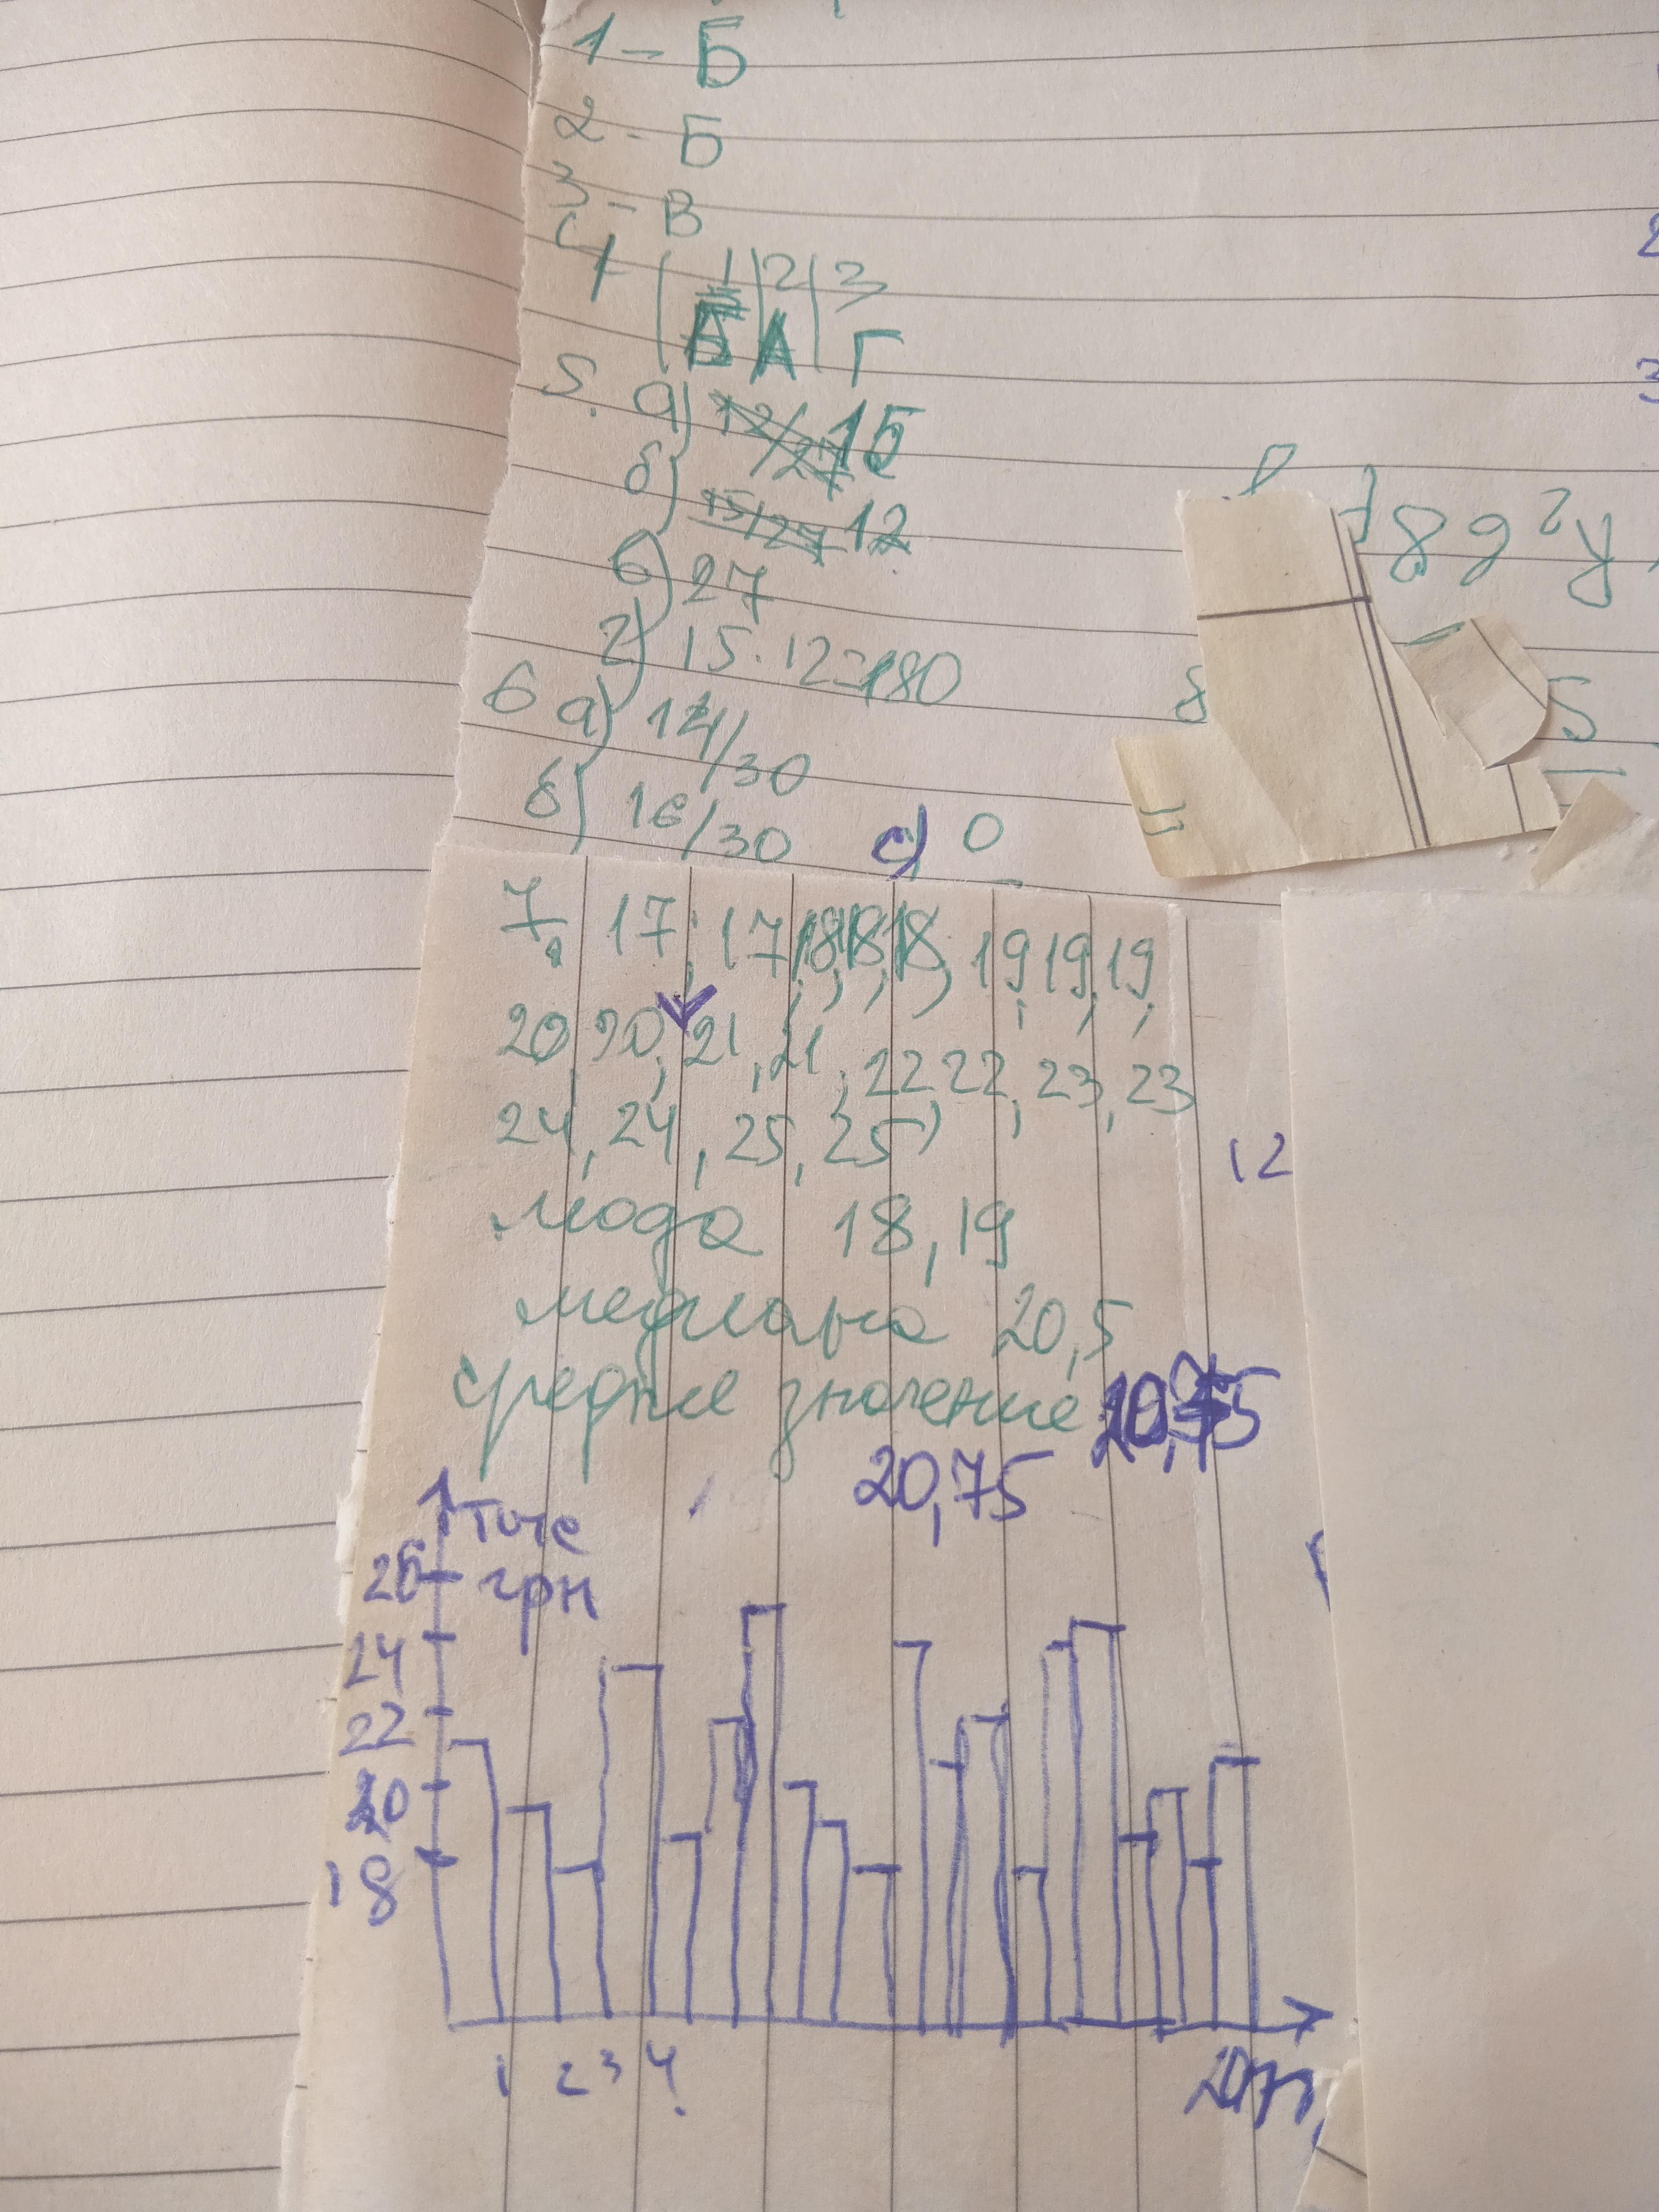 1 - Б
2 - Б
3 - В
4 | 1 | 2 | 3
А | Г
5. а) 12/27 15
б) 15/27 12
в) 27
г) 15 · 12 = 180
6 а) 14/30
б) 16/30 с) 0
7. 17, 17, 18, 18, 18, 19, 19, 19,
20, 20, 21, 21, 22, 22, 23, 23
24, 24, 25, 25
мода 18, 19
медиана 20,5
средне значение
20,75
тыс
26 грн
24
22
20
18
1 2 3 4
12
2
3